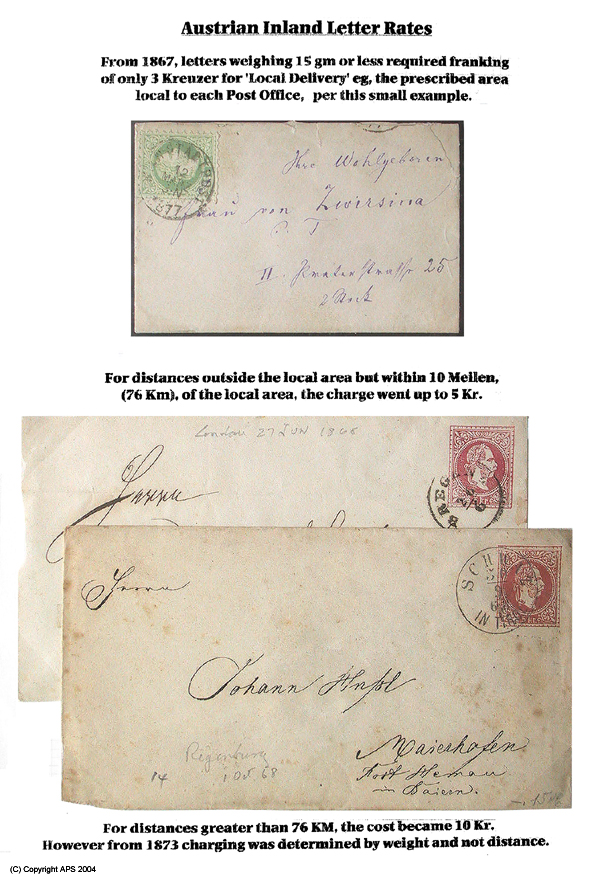 Austrian Inland Letter Rates
From 1867, letters weighing 15 gm or less required franking
of only 3 Kreuzer for 'Local Delivery' eg, the prescribed area
local to each Post Office, per this small example.
77
Ihre Wohlgeboren
Frau von Zwirsina
P. T
II. Praterstrasse 25
2 Stock
For distances outside the local area but within 10 Meilen,
(76 Km), of the local area, the charge went up to 5 Kr.
London 27 JUN 1868
Herrn
BREGEN
Herrn
Johann
Maierhofen
Post Hemau
in Baiern.
14
1 Oct 68
For distances greater than 76 KM, the cost became 10 Kr.
However from 1873 charging was determined by weight and not distance.
(C) Copyright APS 2004